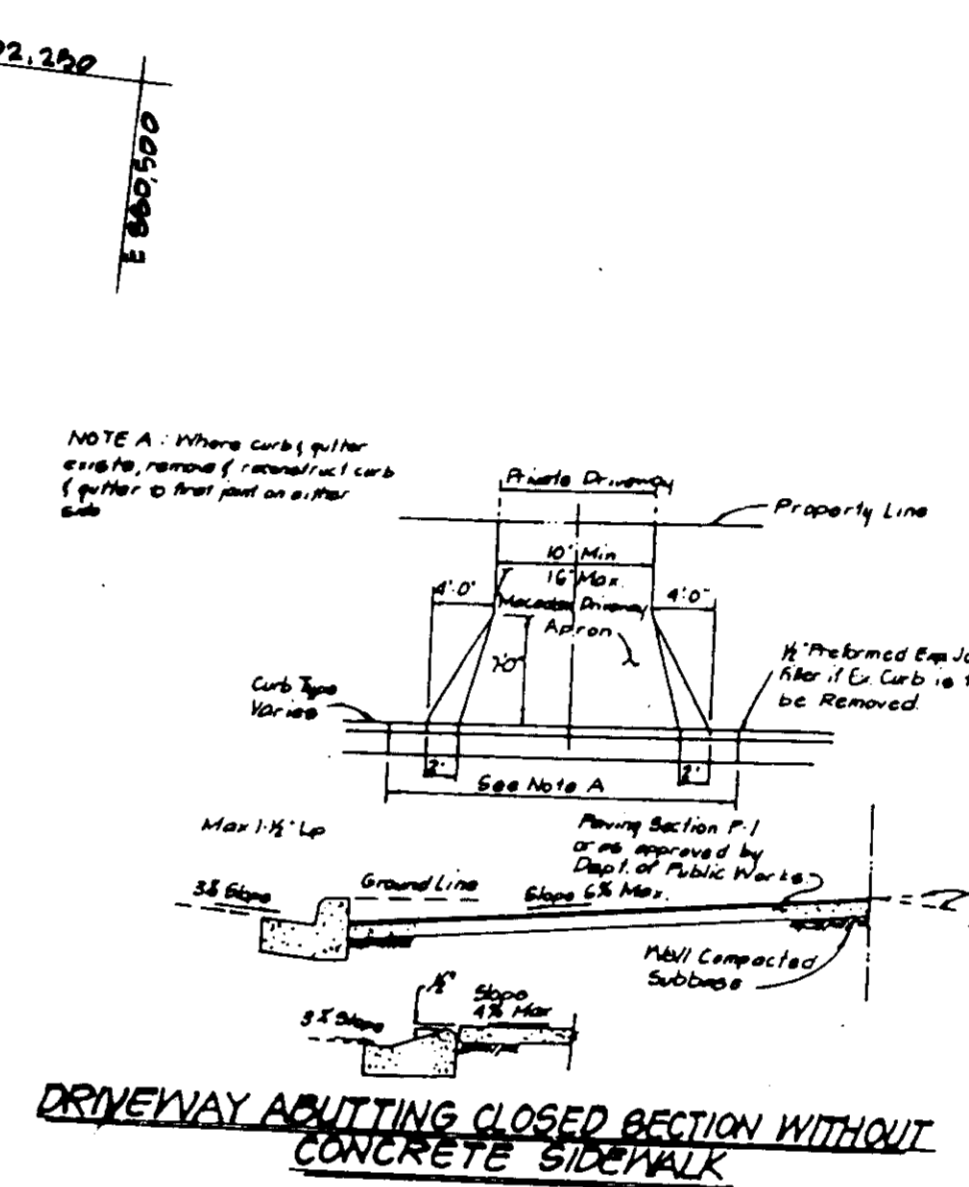 2,250
E 860,500
NOTE A: Where curb & gutter
exists, remove & reconstruct curb
& gutter to first joint on either
side
Private Driveway
Property Line
10' Min
16' Max.
4'-0"
4'-0"
Macadam Driveway
Apron
7'-0"
1/2" Preformed Exp. Jo
Filler if Ex. Curb is t
be Removed.
Curb Type
Varies
2'
2'
See Note A
Max 1-1/2" Lip
Paving Section P-1
or as approved by
Dept. of Public Works.
3% Slope
Ground Line
Slope 6% Max.
Well Compacted
Subbase
1/2"
Slope
4% Max
3% Slope
DRIVEWAY ABUTTING CLOSED SECTION WITHOUT
CONCRETE SIDEWALK